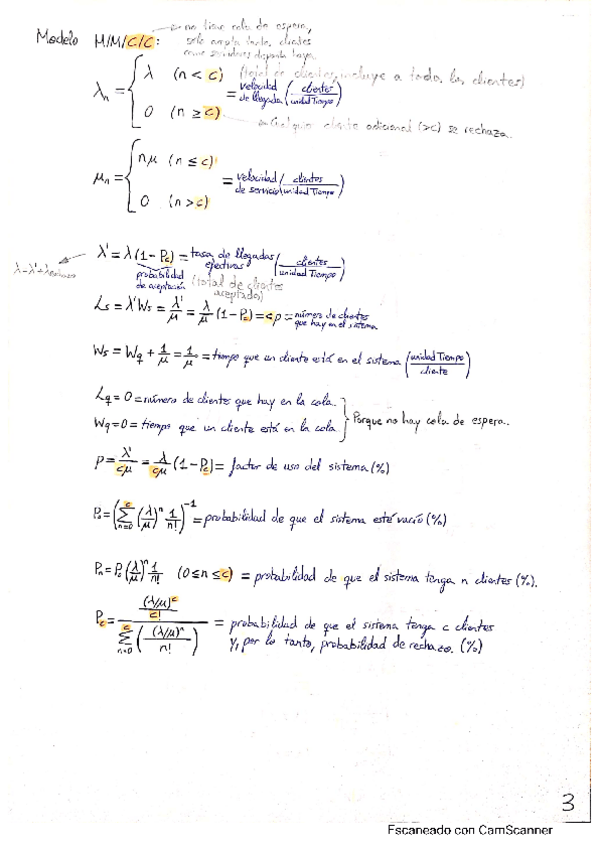 Modelo M/M/C/C: → no tiene cola de espera,
sólo acepta tantos clientes
como servidores disponibles haya.
λn = { λ (n < c) (total de clientes, incluye a todos los clientes)
0 (n ≥ c) = velocidad de llegada (clientes/unidad Tiempo)
→ Cualquier cliente adicional (>c) se rechaza.
μn = { nμ (n ≤ c)
0 (n > c) = velocidad de servicio (clientes/unidad Tiempo)
λ' = λ(1-Pc) = tasa de llegadas efectivas (clientes/unidad Tiempo)
λ = λ' + λrechazo
probabilidad de aceptación
(total de clientes aceptados)
Ls = λ'Ws = λ'/μ = λ/μ (1-Pc) = cρ = número de clientes que hay en el sistema
Ws = Wq + 1/μ = 1/μ = tiempo que un cliente está en el sistema (unidad Tiempo/cliente)
Lq = 0 = número de cliente que hay en la cola.
Wq = 0 = tiempo que un cliente está en la cola
} Porque no hay cola de espera.
ρ = λ'/cμ = λ/cμ (1-Pc) = factor de uso del sistema (%)
P₀ = (Σ n=0 c (λ/μ)ⁿ 1/n!)⁻¹ = probabilidad de que el sistema esté vacío (%)
Pn = P₀ (λ/μ)ⁿ 1/n! (0 ≤ n ≤ c) = probabilidad de que el sistema tenga n clientes (%).
Pc = ((λ/μ)ᶜ / c!) / (Σ n=0 c ((λ/μ)ⁿ / n!)) = probabilidad de que el sistema tenga c clientes
y, por lo tanto, probabilidad de rechazo. (%)
3
Escaneado con CamScanner